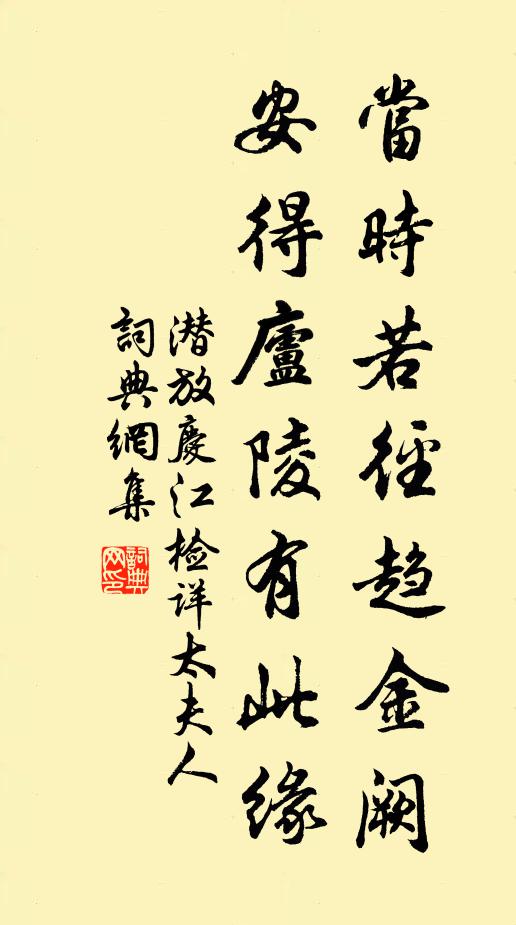 當時若徑趨金闕
安得廬陵有此緣
潜放慶江檢详太夫人
詞典網集
詞典網印